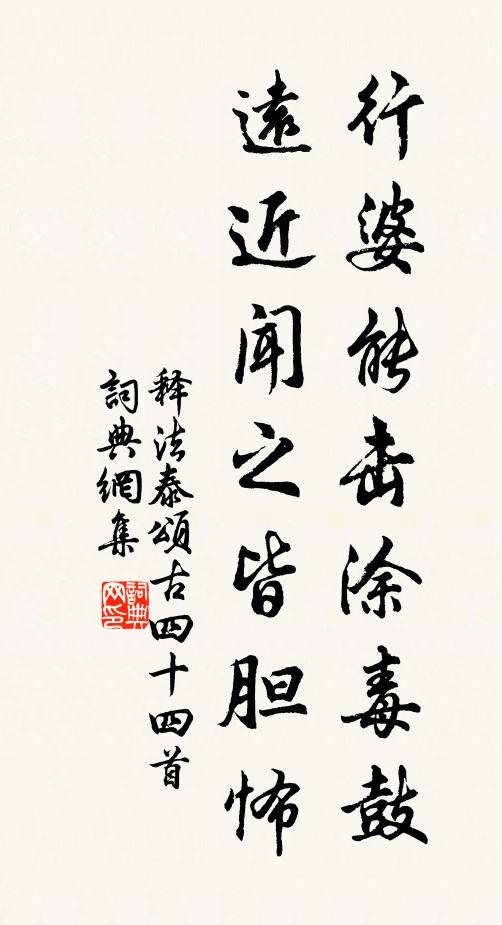 行婆能击涂毒鼓
遠近闻之皆胆怖
释法泰頌古四十四首
詞典網集
詞典
网印